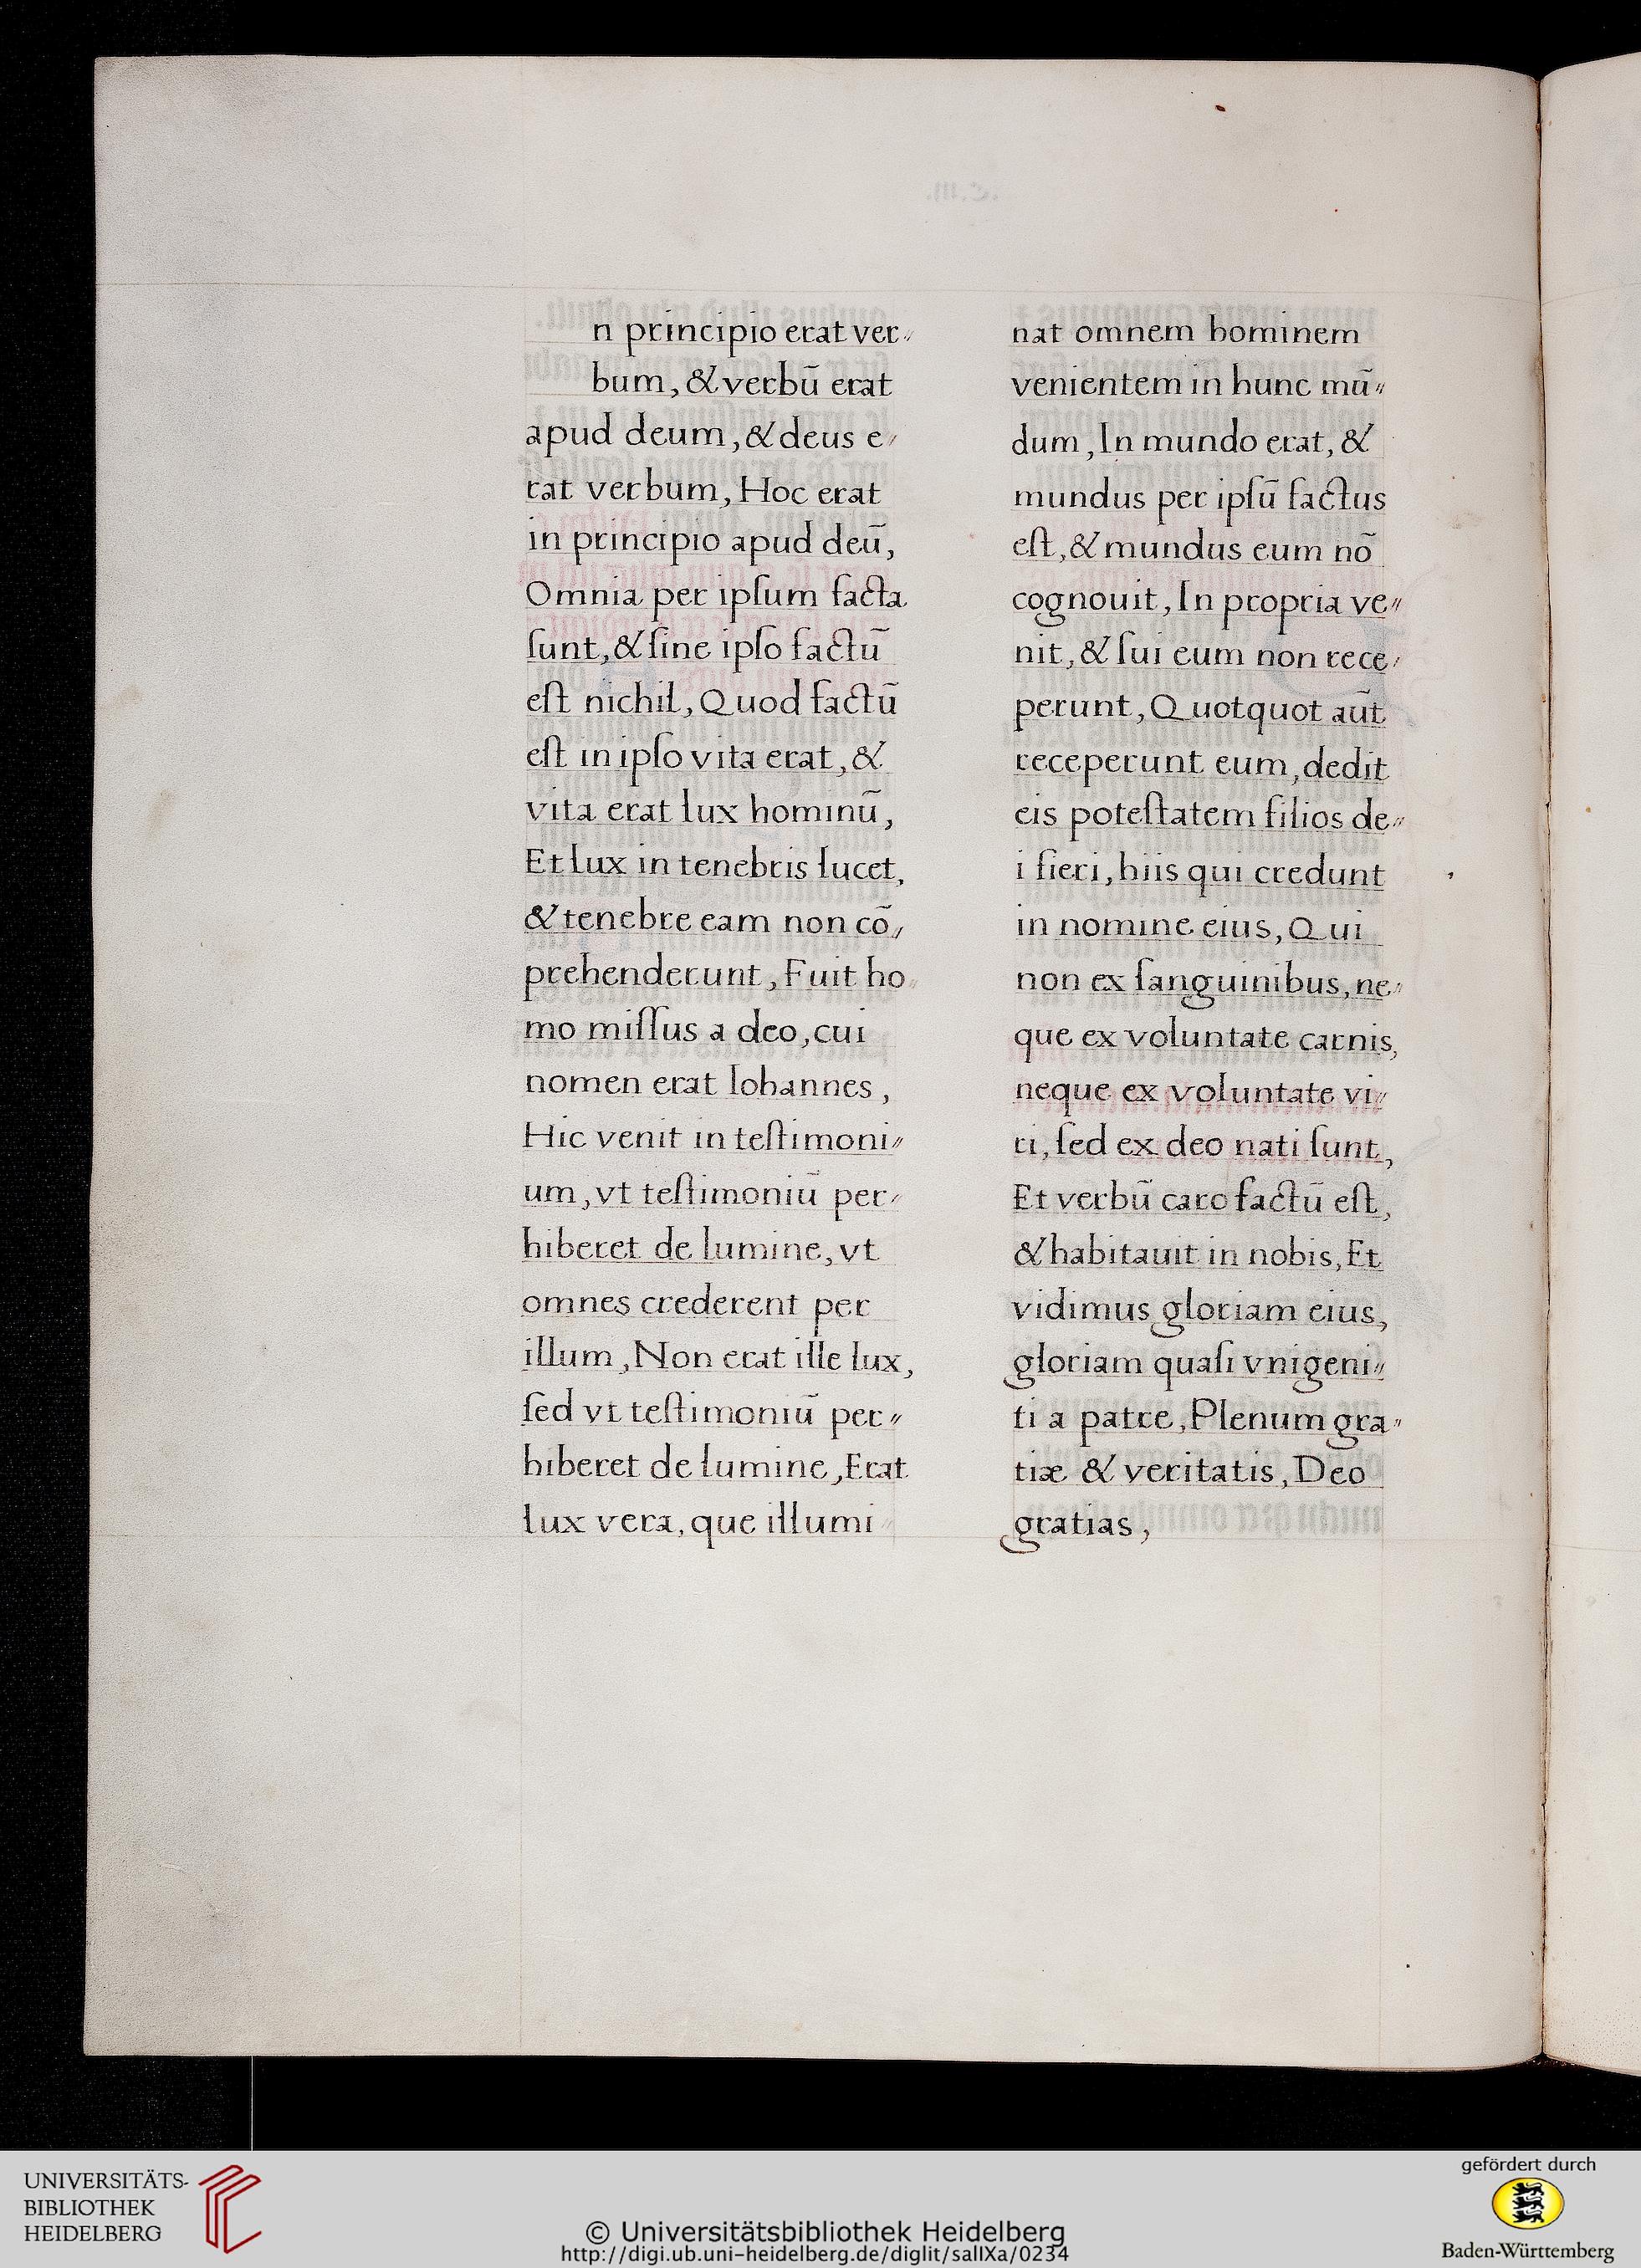 n principio erat ver〃
bum, & verbū erat
apud deum, & deus e〃
rat verbum, Hoc erat
in principio apud deū,
Omnia per ipſum facta
ſunt, & ſine ipſo factū
eſt nichil, Quod factū
eſt in ipſo vita erat, &
vita erat lux hominū,
Et lux in tenebris lucet,
& tenebre eam non cō〃
prehenderunt, Fuit ho〃
mo miſſus a deo, cui
nomen erat Iohannes,
Hic venit in teſtimoni〃
um, vt teſtimoniū per〃
hiberet de lumine, vt
omnes crederent per
illum, Non erat ille lux,
ſed vt teſtimoniū per〃
hiberet de lumine, Erat
lux vera, que illumi〃
nat omnem hominem
venientem in hunc mū〃
dum, In mundo erat, &
mundus per ipſū factus
eſt, & mundus eum nō
cognouit, In propria ve〃
nit, & ſui eum non rece〃
perunt, Quotquot aūt
receperunt eum, dedit
eis poteſtatem filios de〃
i fieri, hiis qui credunt
in nomine eius, Qui
non ex ſanguinibus, ne〃
que ex voluntate carnis,
neque ex voluntate vi〃
ri, ſed ex deo nati ſunt,
Et verbū caro factū eſt,
& habitauit in nobis, Et
vidimus gloriam eius,
gloriam quaſi vnigeni〃
ti a patre, Plenum gra〃
tiæ & veritatis, Deo
gratias,
UNIVERSITÄTS-
BIBLIOTHEK
HEIDELBERG
© Universitätsbibliothek Heidelberg
http://digi.ub.uni-heidelberg.de/diglit/salIXa/0234
gefördert durch
Baden-Württemberg